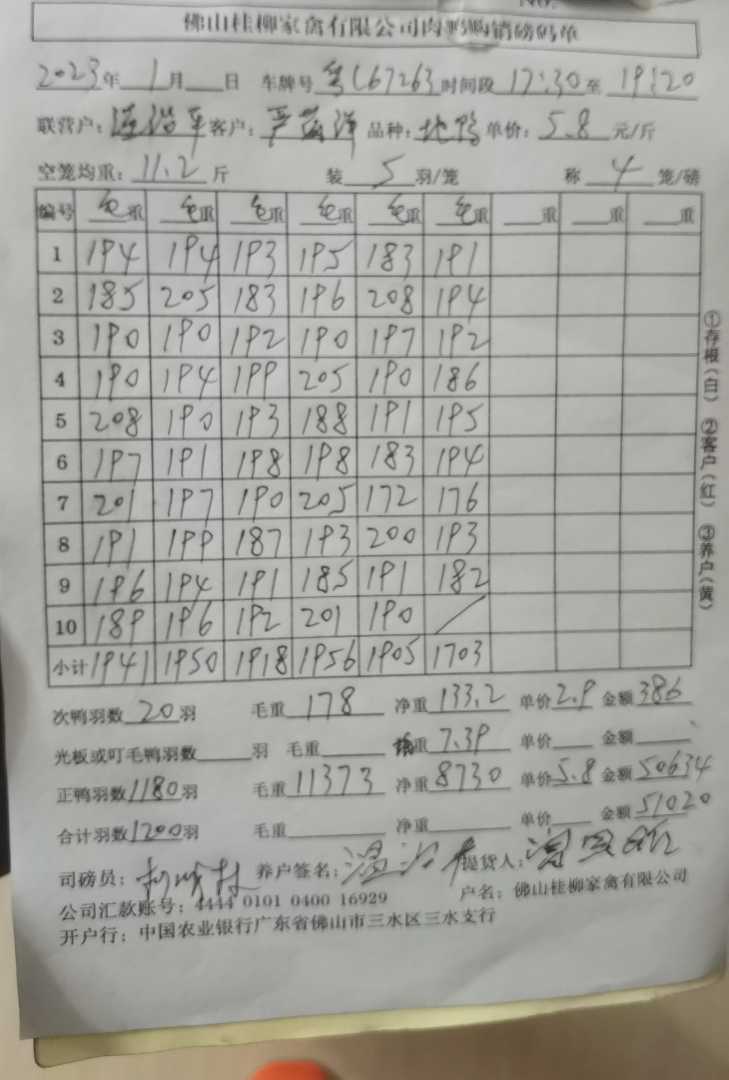 NO.
佛山桂柳家禽有限公司肉鸭购销磅码单
2023年 1月 日 车牌号 粤C67263 时间段 17:30 至 19:20
联营户: 平 客户: 严 洋 品种: 地鸭 单价: 5.8 元/斤
空笼均重: 11.2 斤 装 5 羽/笼 称 4 笼/磅
编号 毛重 毛重 毛重 毛重 毛重 毛重 重 重 重
1 194 194 193 195 183 191
2 185 205 183 196 208 194
3 190 190 192 190 197 192
4 190 194 199 205 190 186
5 208 190 193 188 191 195
6 197 191 198 198 183 194
7 201 197 190 205 172 176
8 191 199 187 193 200 193
9 196 194 191 185 191 182
10 189 196 192 201 190 /
小计 1941 1950 1918 1956 1905 1703
①存根(白) ②客户(红) ③养户(黄)
次鸭羽数 20 羽 毛重 178 净重 133.2 单价 2.9 金额 386
光板或叮毛鸭羽数 羽 毛重 重 7.39 单价 金额
正鸭羽数 1180 羽 毛重 11373 净重 8730 单价 5.8 金额 50634
合计羽数 1200 羽 毛重 净重 单价 金额 51020
司磅员: 养户签名: 提货人:
公司汇款账号: 4444 0101 0400 16929 户名: 佛山桂柳家禽有限公司
开户行: 中国农业银行广东省佛山市三水区三水支行